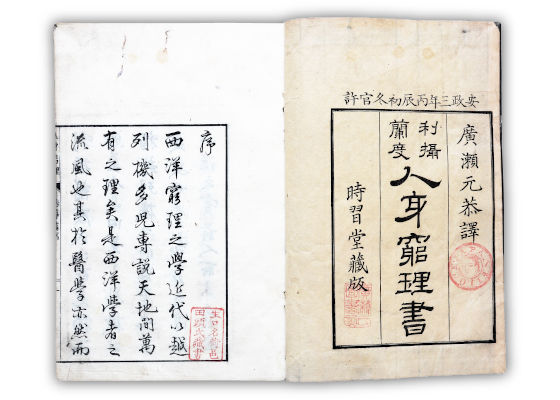 安政三年丙辰初冬官許
廣瀨元恭譯
利攝
蘭度
人身窮理書
時習堂藏版
序
西洋窮理之學近代以越
列機多兒專說天地間萬
有之理矣是西洋學者之
流風也其於醫學亦然而